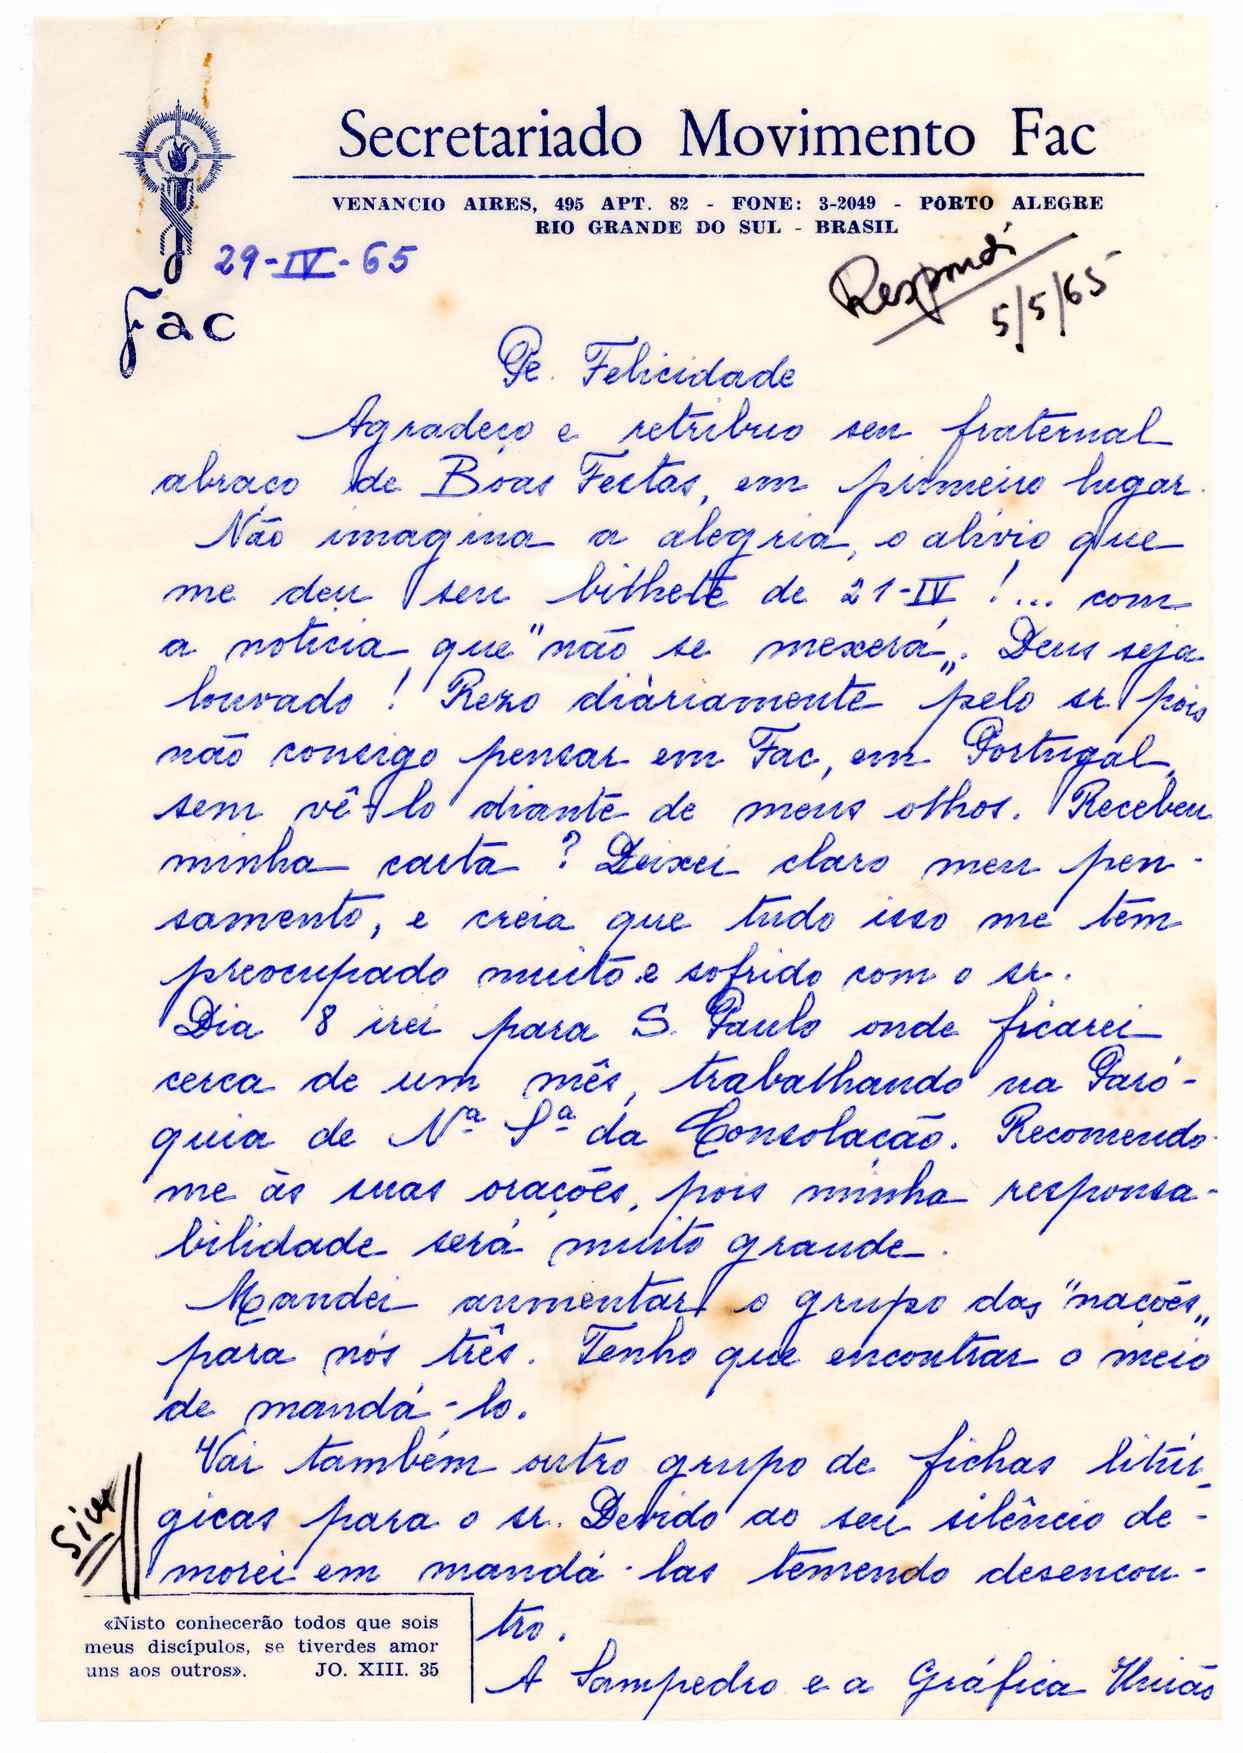 Secretariado Movimento Fac
VENÂNCIO AIRES, 495 APT. 82 - FONE: 3-2049 - PÔRTO ALEGRE
RIO GRANDE DO SUL - BRASIL
29-IV-65
Fac
Respondi
5/5/65
Pe. Felicidade
Agradeço e retribuo seu fraternal
abraço de Bôas Festas, em primeiro lugar.
Não imagina a alegria, o alívio que
me deu seu bilhete de 21-IV !... com
a notícia que "não se mexerá". Deus seja
louvado ! Rezo diàriamente pelo sr. pois
não consigo pensar em Fac, em Portugal,
sem vê-lo diante de meus olhos. Recebeu
minha carta ? Deixei claro meu pen-
samento, e creia que tudo isso me têm
preocupado muito e sofrido com o sr.
Dia 8 irei para S. Paulo onde ficarei
cerca de um mês, trabalhando na Paró-
quia de Nª Sª da Consolação. Recomendo-
me às suas orações, pois minha responsa-
bilidade será muito grande.
Mandei aumentar o grupo das "nações"
para nós três. Tenho que encontrar o meio
de mandá-lo.
Vai também outro grupo de fichas litúr-
gicas para o sr. Devido ao seu silêncio de-
morei em mandá-las temendo desencon-
tro.
A Sampedro e a Gráfica União
«Nisto conhecerão todos que sois
meus discípulos, se tiverdes amor
uns aos outros». JO. XIII. 35